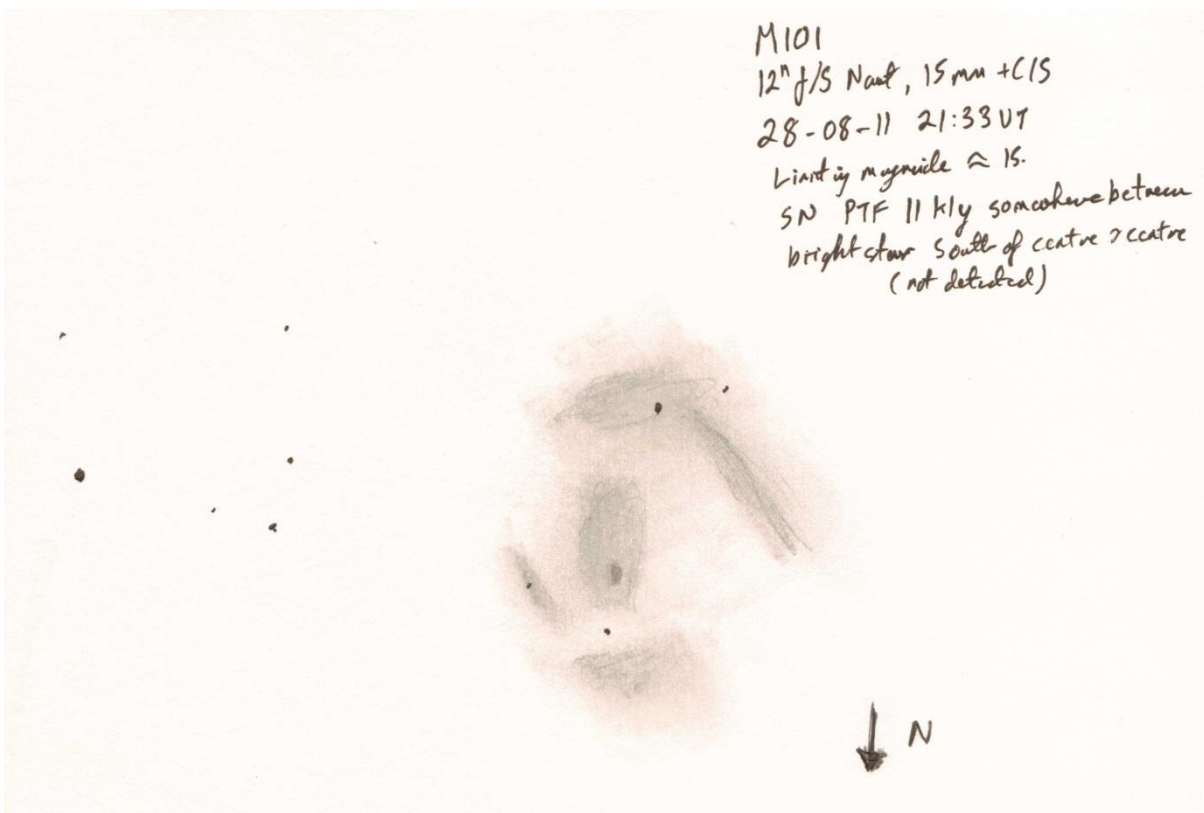 M101
12" f/5 Newt, 15mm + CLS
28-08-11 21:33 UT
Limiting magnitude ≈ 15.
SN PTF 11kly somewhere between
bright star South of centre & centre
(not detected)
N